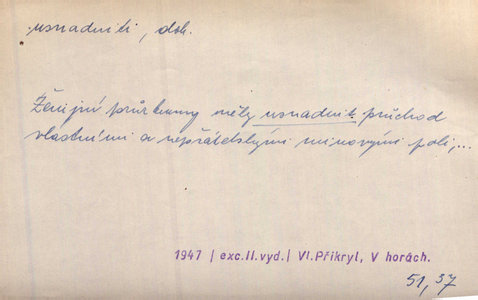 usnadniti, dok.
Ženijní průzkumy měly usnadnit průchod
vlastními a nepřátelskými minovými poli,...
1947 / exc.II.vyd./ Vl.Přikryl, V horách.
51,37